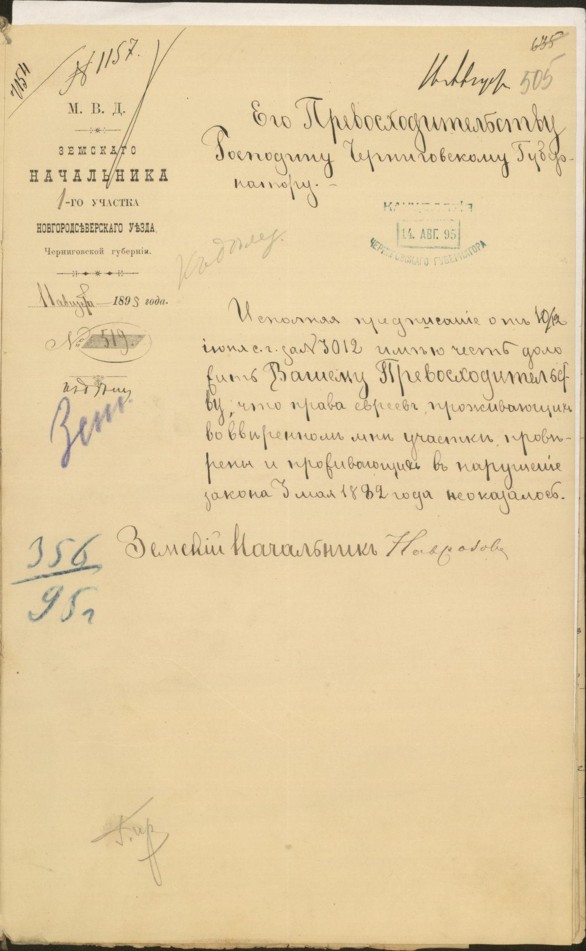 635
№ 1157.
505
М. В. Д.
ЗЕМСКАГО
НАЧАЛЬНИКА
1-ГО УЧАСТКА
НОВГОРОДСѢВЕРСКАГО УѢЗДА,
Черниговской губерніи.
11 августа 1895 года.
№ 519.
Его Превосходительству
Господину Черниговскому Губер-
натору.
КАНЦЕЛЯРІЯ
14. АВГ. 95
ЧЕРНИГОВСКАГО ГУБЕРНАТОРА
Исполняя предписаніе отъ 10/12
іюня с. г. за № 3012 имѣю честь доло
жить Вашему Превосходительст-
ву, что права евреевъ, проживающихъ
во ввѣренномъ мнѣ участкѣ, провѣ-
рены и проживающихъ въ нарушеніе
закона 3 мая 1882 года неоказалось.
Земскій Начальникъ
356
95 г